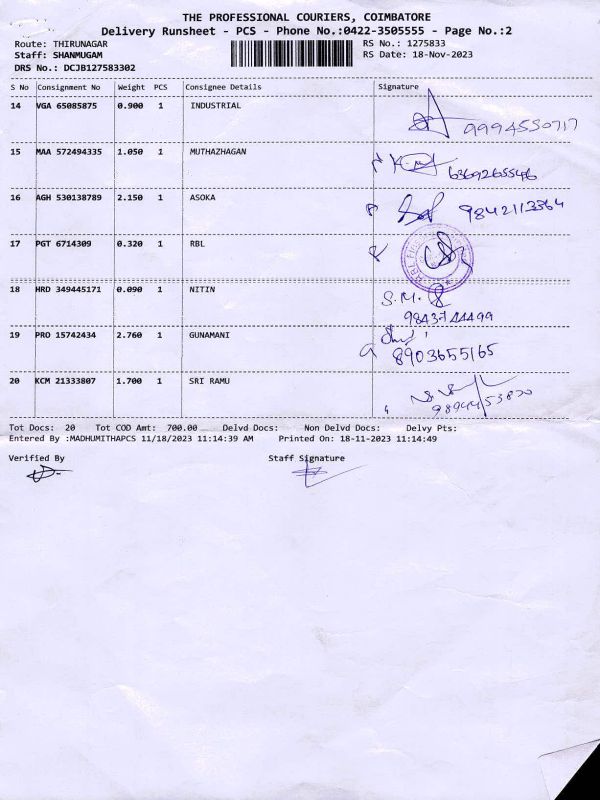 THE PROFESSIONAL COURIERS, COIMBATORE
Delivery Runsheet - PCS - Phone No.:0422-3505555 - Page No.:2
Route: THIRUNAGAR RS No.: 1275833
Staff: SHANMUGAM RS Date: 18-Nov-2023
DRS No.: DCJB127583302
S No Consignment No Weight PCS Consignee Details Signature
14 VGA 65085875 0.900 1 INDUSTRIAL
9994550717
15 MAA 572494335 1.050 1 MUTHAZHAGAN
6369265546
16 AGH 530138789 2.150 1 ASOKA
9842113364
17 PGT 6714309 0.320 1 RBL
18 HRD 349445171 0.090 1 NITIN
S.M.
9843744499
19 PRO 15742434 2.760 1 GUNAMANI
8903655165
20 KCM 21333807 1.700 1 SRI RAMU
Tot Docs: 20 Tot COD Amt: 700.00 Delvd Docs: Non Delvd Docs: Delvy Pts:
Entered By :MADHUMITHAPCS 11/18/2023 11:14:39 AM Printed On: 18-11-2023 11:14:49
Verified By Staff Signature